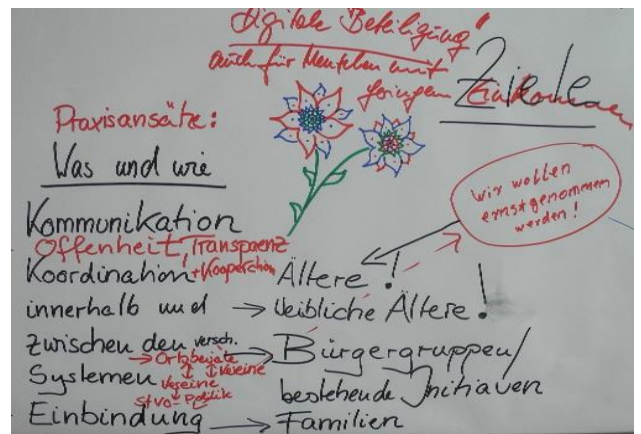 digitale Beteiligung"
auch für Menschen mit
geringem Einkommen
Ziele
Praxisansätze:
Was und wie
Kommunikation
Offenheit, Transparenz
Koordination + Kooperation
innerhalb und
zwischen den versch.
→ Ortsbeiräte
Vereine
Systemen
Vereine
StVo - Politik
Einbindung → Familien
Wir wollen
ernstgenommen
werden!
Ältere!
→ Weibliche Ältere!
→ Bürgergruppen/
bestehende Initiaven